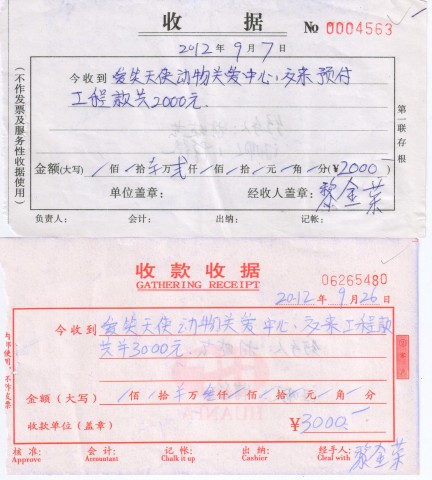 收据 No 0004563
2012年9月7日
今收到 爱笑天使动物关爱中心,交来预付
工程款共2000元.
金额(大写) 佰 拾 万 贰仟 佰 拾 元 角 分(¥2000
单位盖章: 经收人盖章: 黎金荣
负责人: 会计: 出纳: 记帐:
(不作发票及服务性收据使用)
第一联存根
收款收据 06265480
GATHERING RECEIPT
2012年9月26日
今收到 爱笑天使动物关爱中心,交来工程款
共3000元.
金额(大写) 佰 拾 万 叁仟 佰 拾 元 角 分
收款单位(盖章) ¥3000
核准: 会计: 记帐: 出纳: 经手人: 黎金荣
Approve Accountant Chalk it up Cashier Cleal with